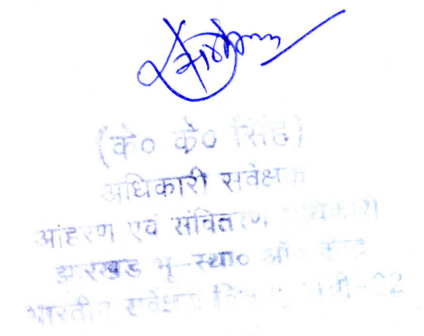 (के० के० सिंह)
अधिकारी सर्वेक्षक
आंहरण एवं संवितरण
झारखंड भू-स्था० आँ० केन्द्र
भारतीय सर्वेक्षण विभाग, राँची-02